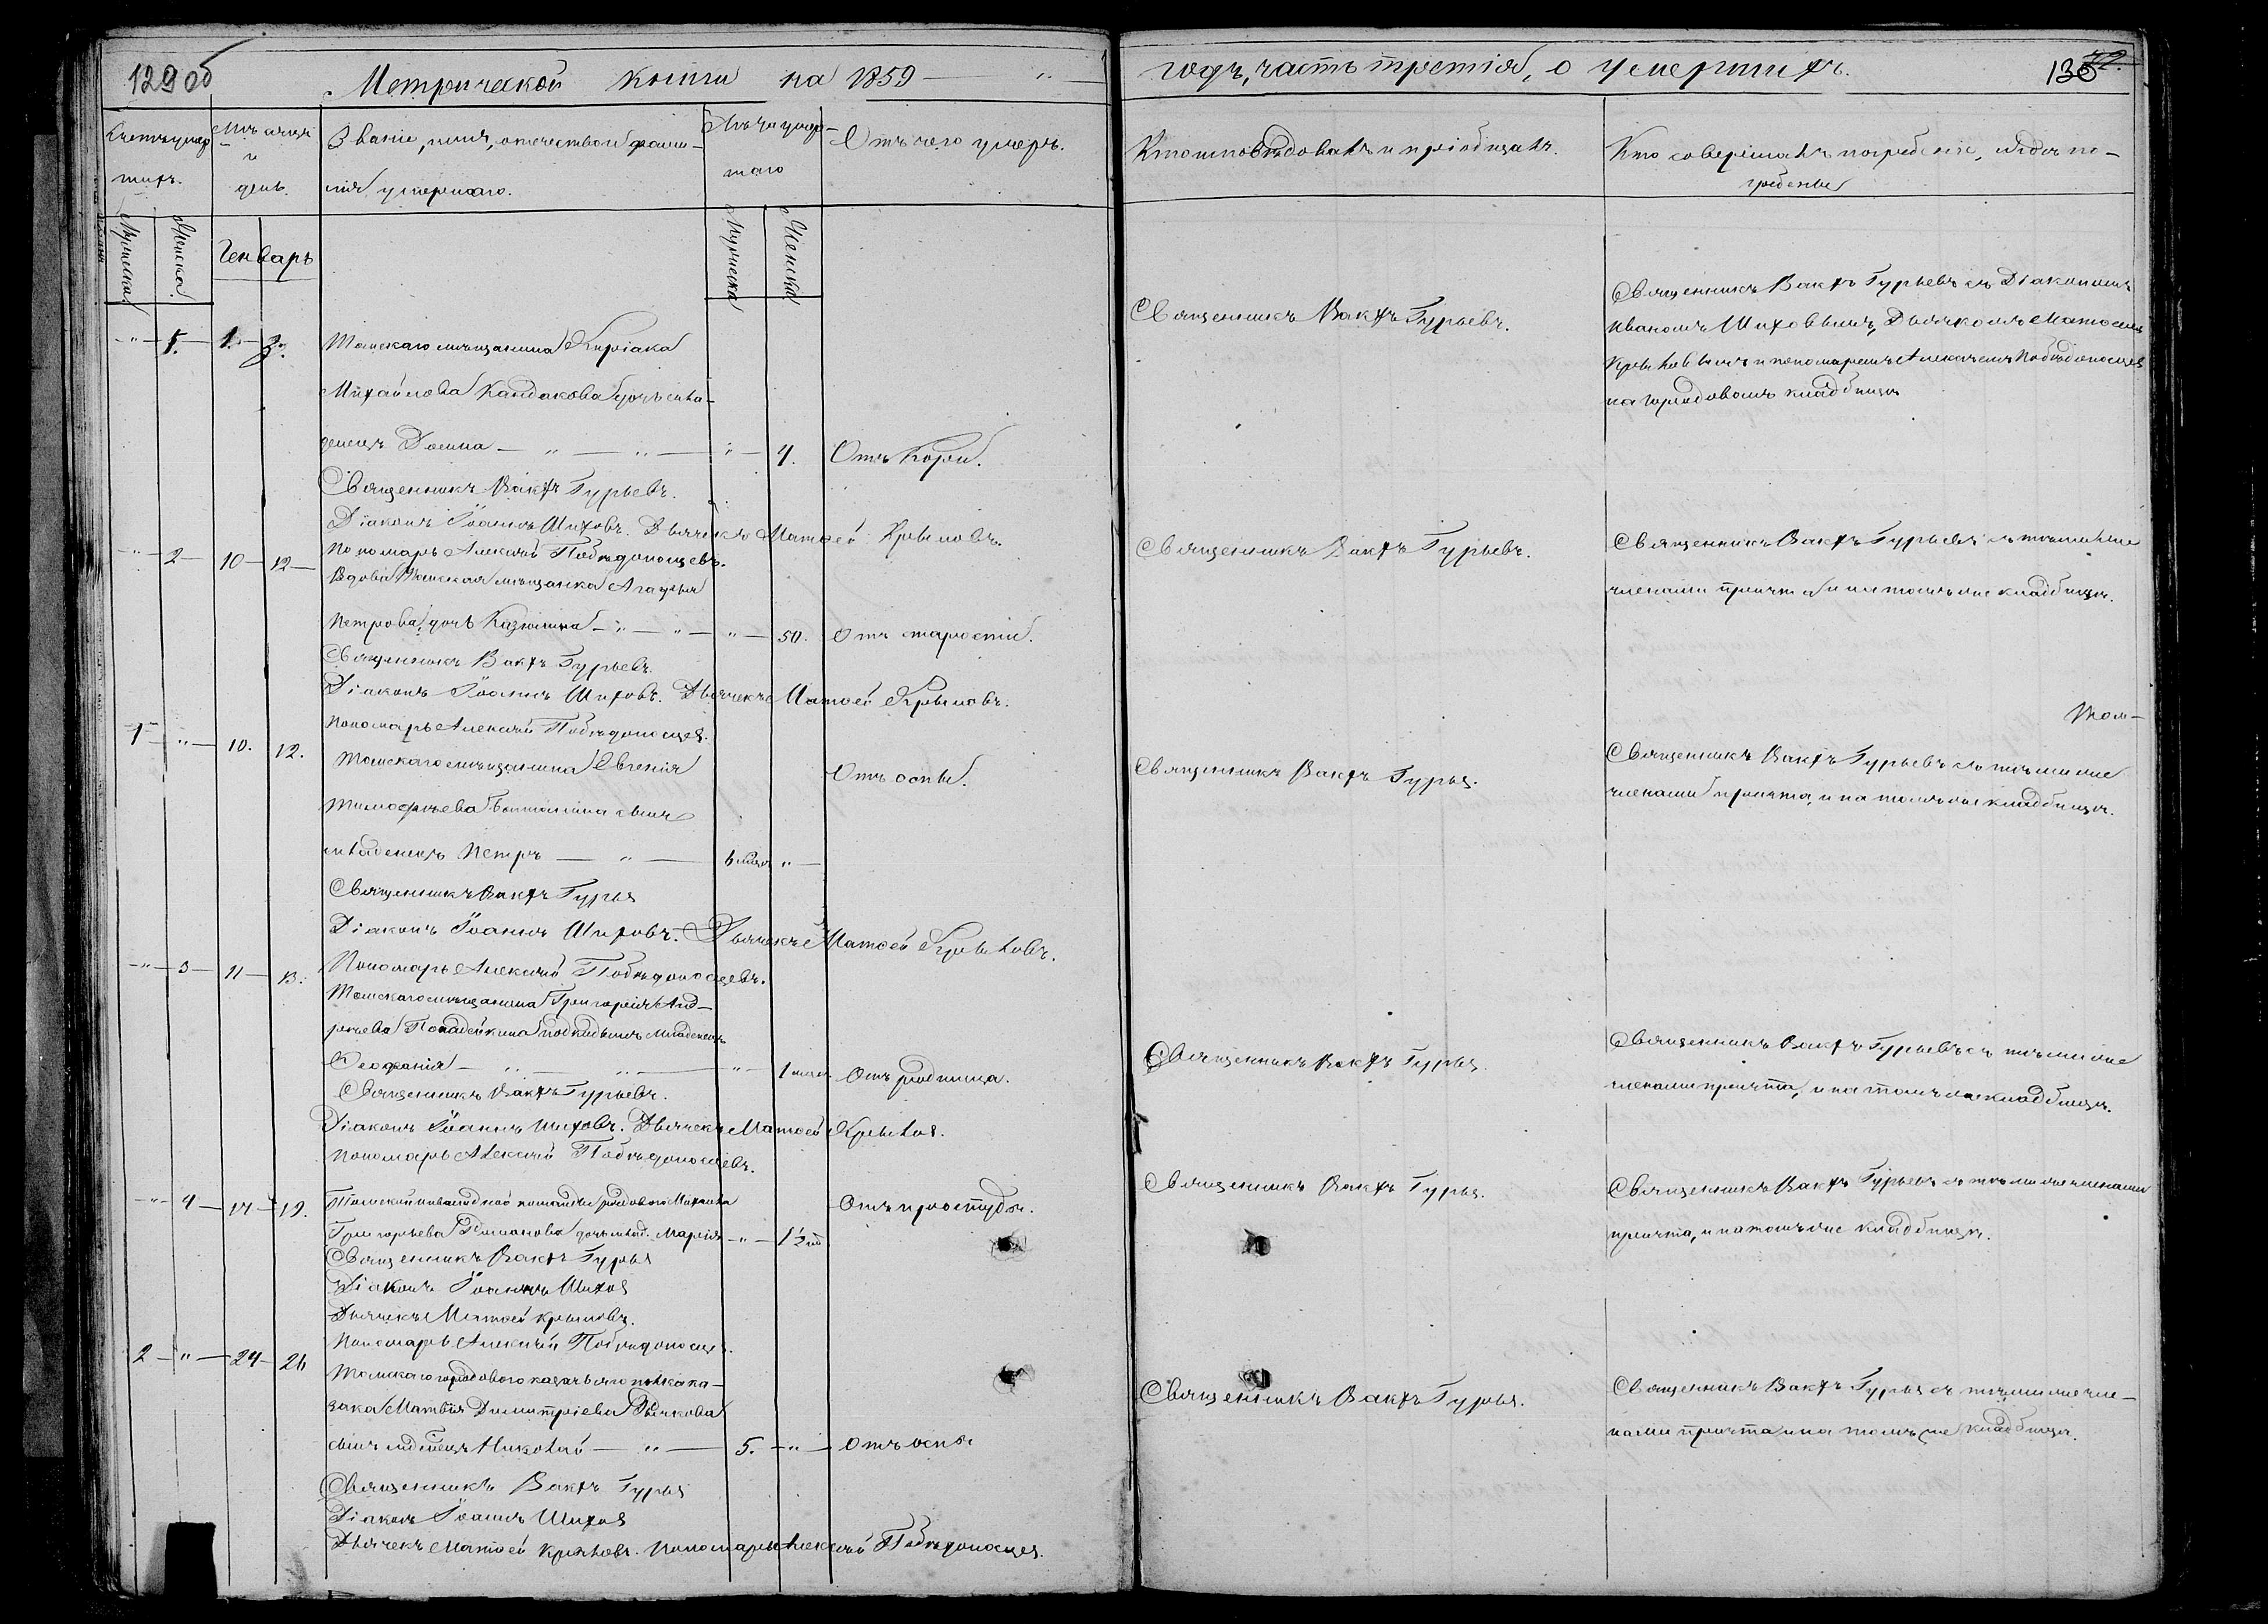 129об
Метрической книги на 1859
годъ, часть третія, о умершихъ.
130
Счетъ умер-
шихъ.
Мужеска
Женска
Мѣсяцъ
и
день.
Генварь
Званіе, имя, отчество и фами-
лія умершаго.
Лѣта умер-
шаго
Мужеска
Женска
Отъ чего умеръ.
Кто исповѣдовалъ и пріобщалъ.
Кто совершалъ погребеніе, и гдѣ по-
гребены
" 1. 1. 3. Томскаго мѣщанина Киріака
Михайлова Кандакова дочь мла-
денецъ Домна " " " 4. Отъ Кори.
Священникъ Вакхъ Гурьевъ.
Священникъ Вакхъ Гурьевъ съ Діакономъ
Иваномъ Шиховымъ, Дьячкомъ Матѳеемъ
Крыловымъ и пономаремъ Алексѣемъ Побѣдоносцев
на городовомъ кладбищѣ
Священникъ Вакхъ Гурьевъ.
Діаконъ Іоаннъ Шиховъ. Дьячекъ Матѳей Крыловъ.
Пономарь Алексѣй Побѣдоносцевъ.
" 2 10 12 Вдова Томская мѣщанка Агафья
Петрова дочь " " " 50. Отъ старости.
Священникъ Вакхъ Гурьевъ.
Священникъ Вакхъ Гурьевъ съ тѣми же
членами причта и на томъ же кладбищѣ.
Священникъ Вакхъ Гурьевъ.
Діаконъ Іоаннъ Шиховъ. Дьячекъ Матѳей Крыловъ.
Пономарь Алексѣй Побѣдоносцев.
1 " 10. 12. Томскаго мѣщанина Евгенія
Тимофѣева сынъ
младенецъ Петръ " 6 мѣся " Отъ оспы.
Священникъ Вакхъ Гурьев.
Том-
Священникъ Вакхъ Гурьевъ съ тѣми же
членами причта, и на томъ же кладбищѣ.
Священникъ Вакхъ Гурьев
Діаконъ Іоаннъ Шиховъ. Дьячекъ Матѳей Крыловъ.
Пономарь Алексѣй Побѣдоносцевъ.
" 3 11 13. Томскаго мѣщанина Григорія Анд-
реева подкидышъ младенецъ
Ѳеофанія " " " 1 мѣся. Отъ родимца.
Священникъ Вакхъ Гурьев.
Священникъ Вакхъ Гурьевъ съ тѣми же
членами причта, и на томъ же кладбищѣ.
Священникъ Вакхъ Гурьевъ.
Діаконъ Іоаннъ Шиховъ. Дьячекъ Матѳей Крылов.
Пономарь Алексѣй Побѣдоносцевъ.
" 4 17 19. Томской инвалидной команды рядоваго Михаила
Григорьева дочь млад. Марія " 1½ Отъ простуды.
Священникъ Вакхъ Гурьев.
Священникъ Вакхъ Гурьевъ съ тѣми же членами
причта, и на томъ же кладбищѣ.
Священникъ Вакхъ Гурьев
Діаконъ Іоаннъ Шихов
Дьячекъ Матѳей Крыловъ.
Пономарь Алексѣй Побѣдоносцев.
2 " 24 26 Томскаго городоваго казачьяго полка ка-
зака Матвѣя Димитріева
сынъ млденецъ Николай " 5. " Отъ оспы
Священникъ Вакхъ Гурьев.
Священникъ Вакхъ Гурьев съ тѣми же чле-
нами причта и на томъ же кладбищѣ.
Священникъ Вакхъ Гурьев
Діаконъ Іоаннъ Шихов
Дьячекъ Матѳей Крыловъ. Пономарь Алексѣй Побѣдоносцев.